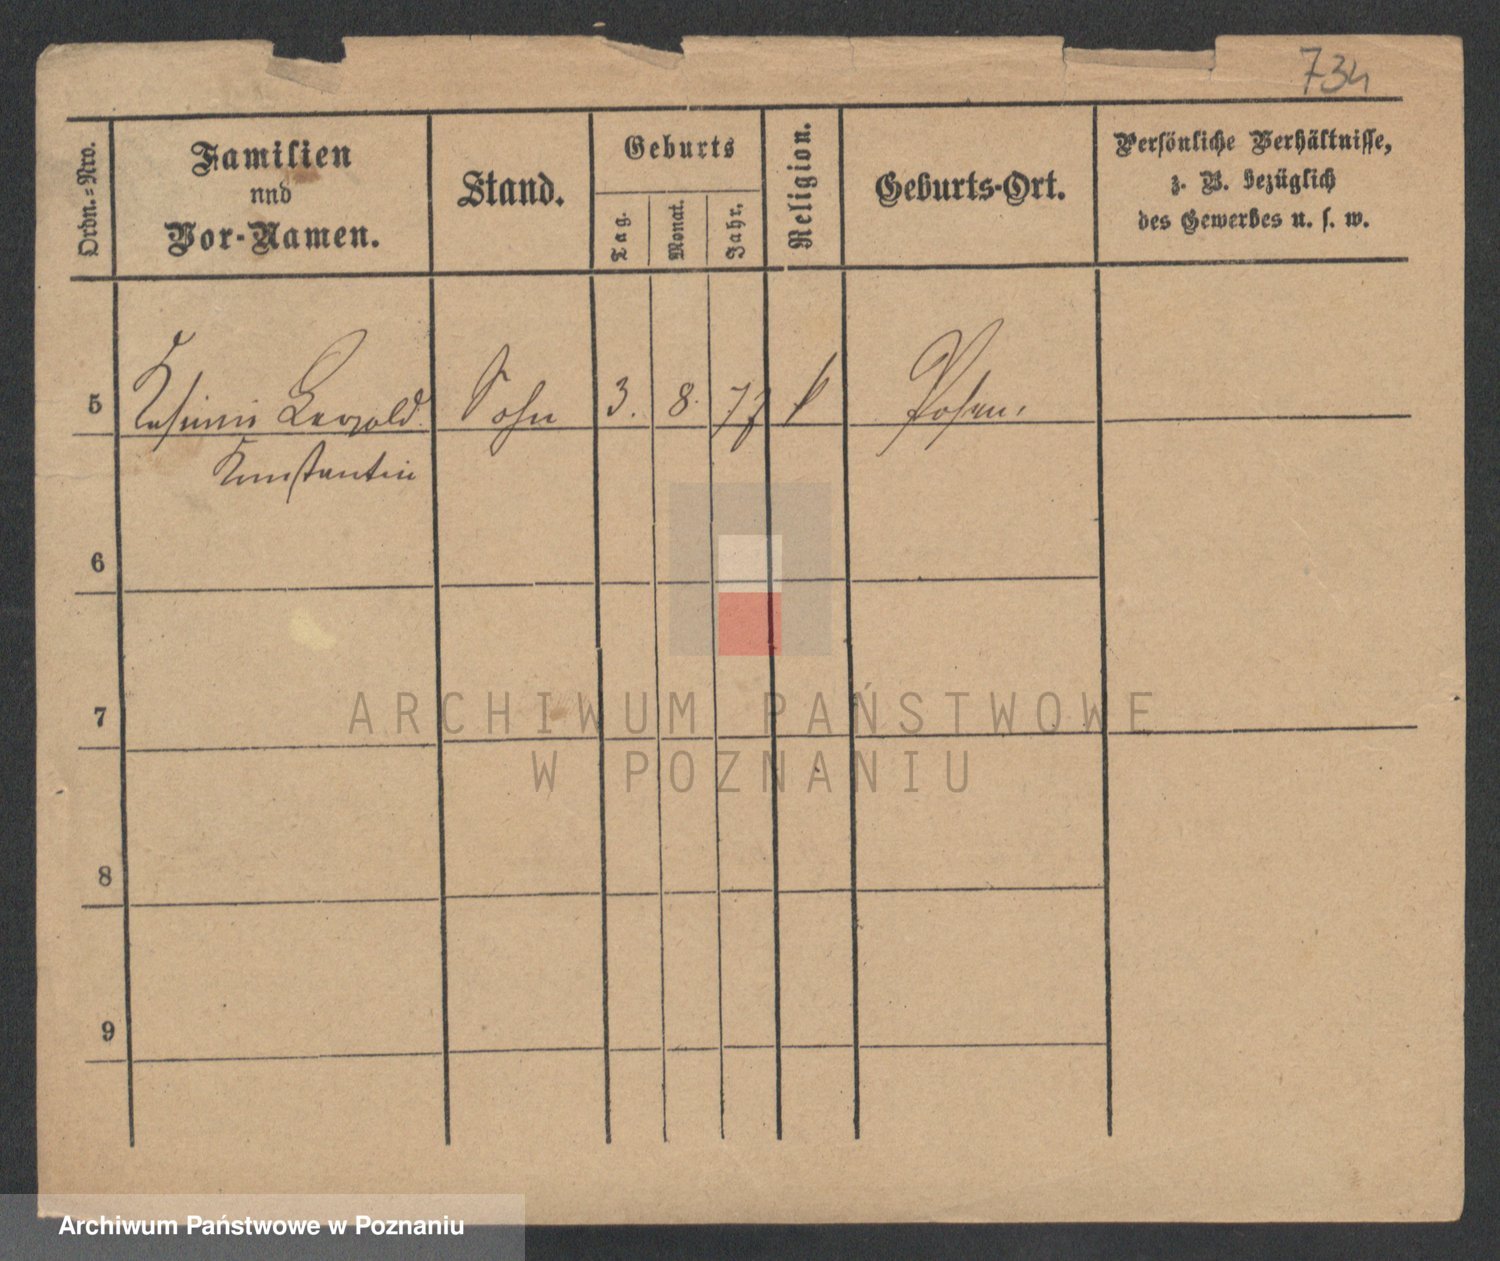 734
Ordn.=Nro.
Familien
nnd
Vor-Namen.
Stand.
Geburts
Tag.
Monat.
Jahr.
Religion.
Geburts-Ort.
Persönliche Verhältnisse,
z. B. bezüglich
des Gewerbes u. s. w.
5 Kasimir Leopold Sohn 3. 8. 77 k Posen.
Konstantin
6
7
ARCHIWUM PAŃSTWOWE
W POZNANIU
8
9
Archiwum Państwowe w Poznaniu